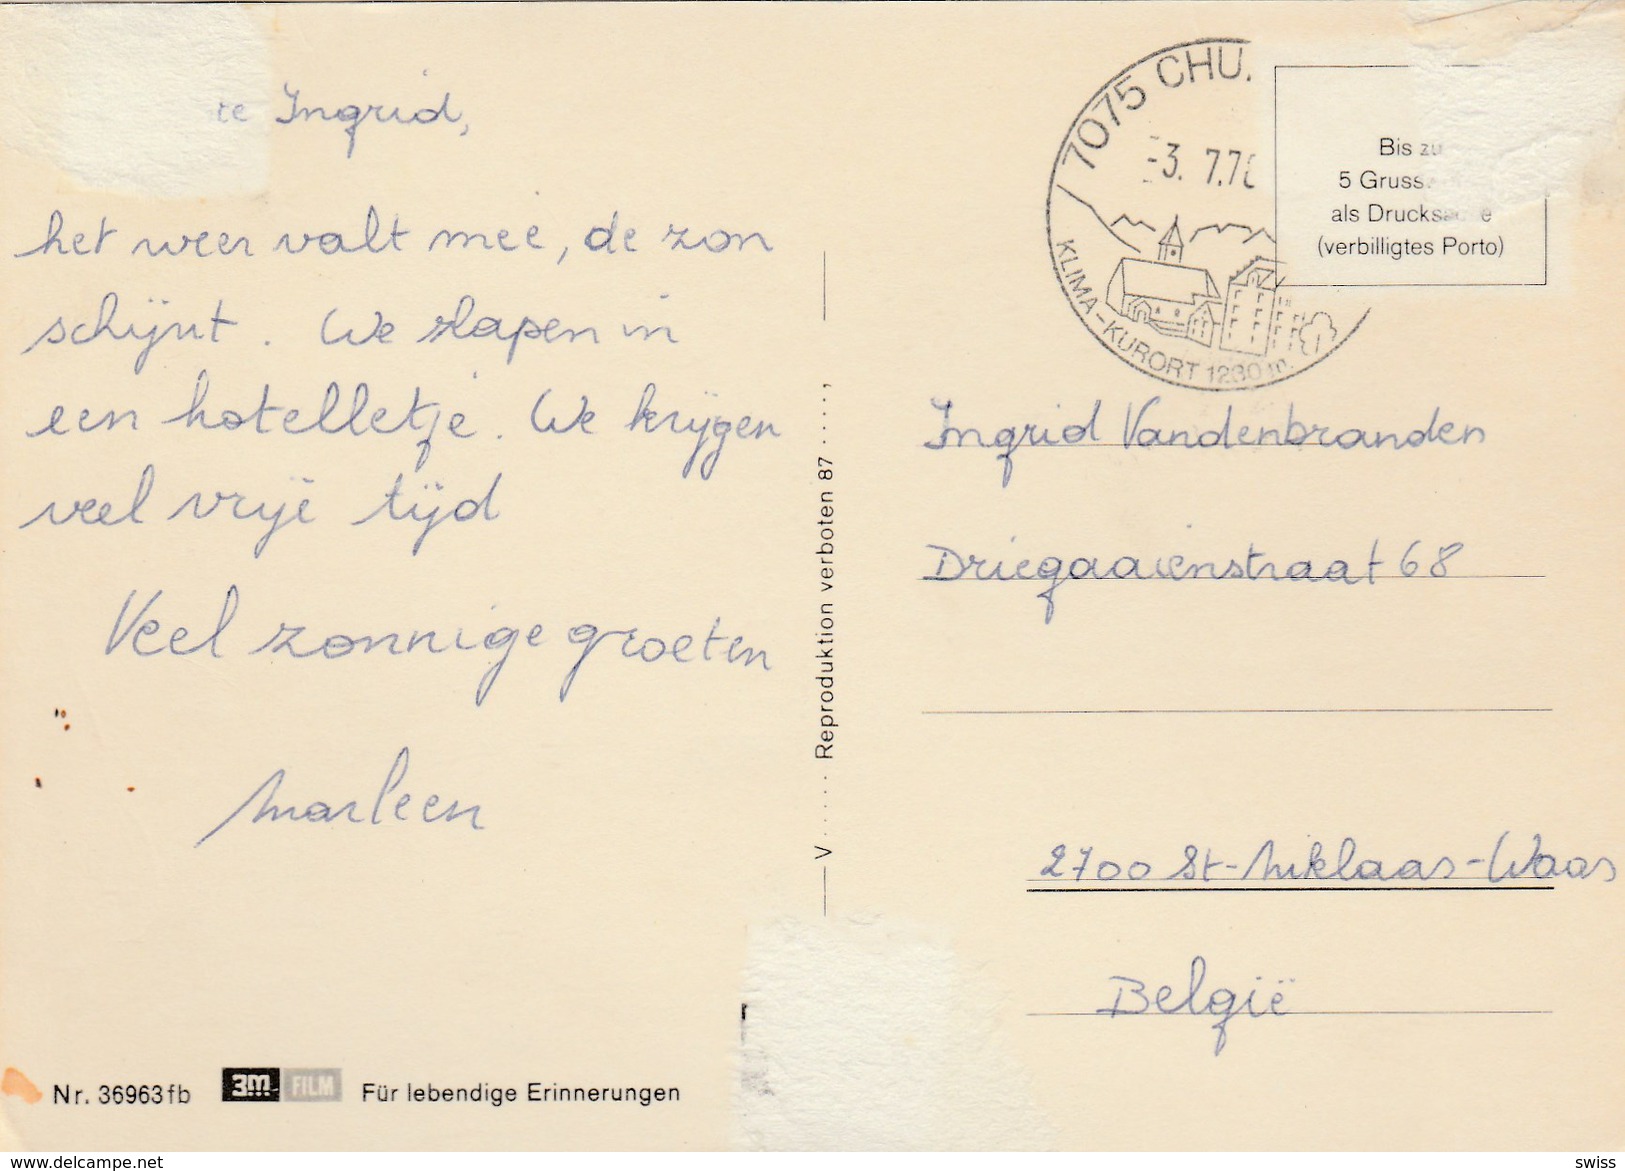 Ingrid,
het weer valt mee, de zon
schijnt. We slapen in
een hotelletje. We krijgen
veel vrije tijd
Veel zonnige groeten
Marleen
Nr. 36963fb
3m FILM
Für lebendige Erinnerungen
V..... Reproduktion verboten 87.....,
7075 CHU.
-3. 7.7
KLIMA-KURORT 1230 m.
Bis zu
5 Gruss
als Drucksache
(verbilligtes Porto)
Ingrid Vandenbranden
Driegaaienstraat 68
2700 St-Niklaas-Waas
België
www.delcampe.net
swiss